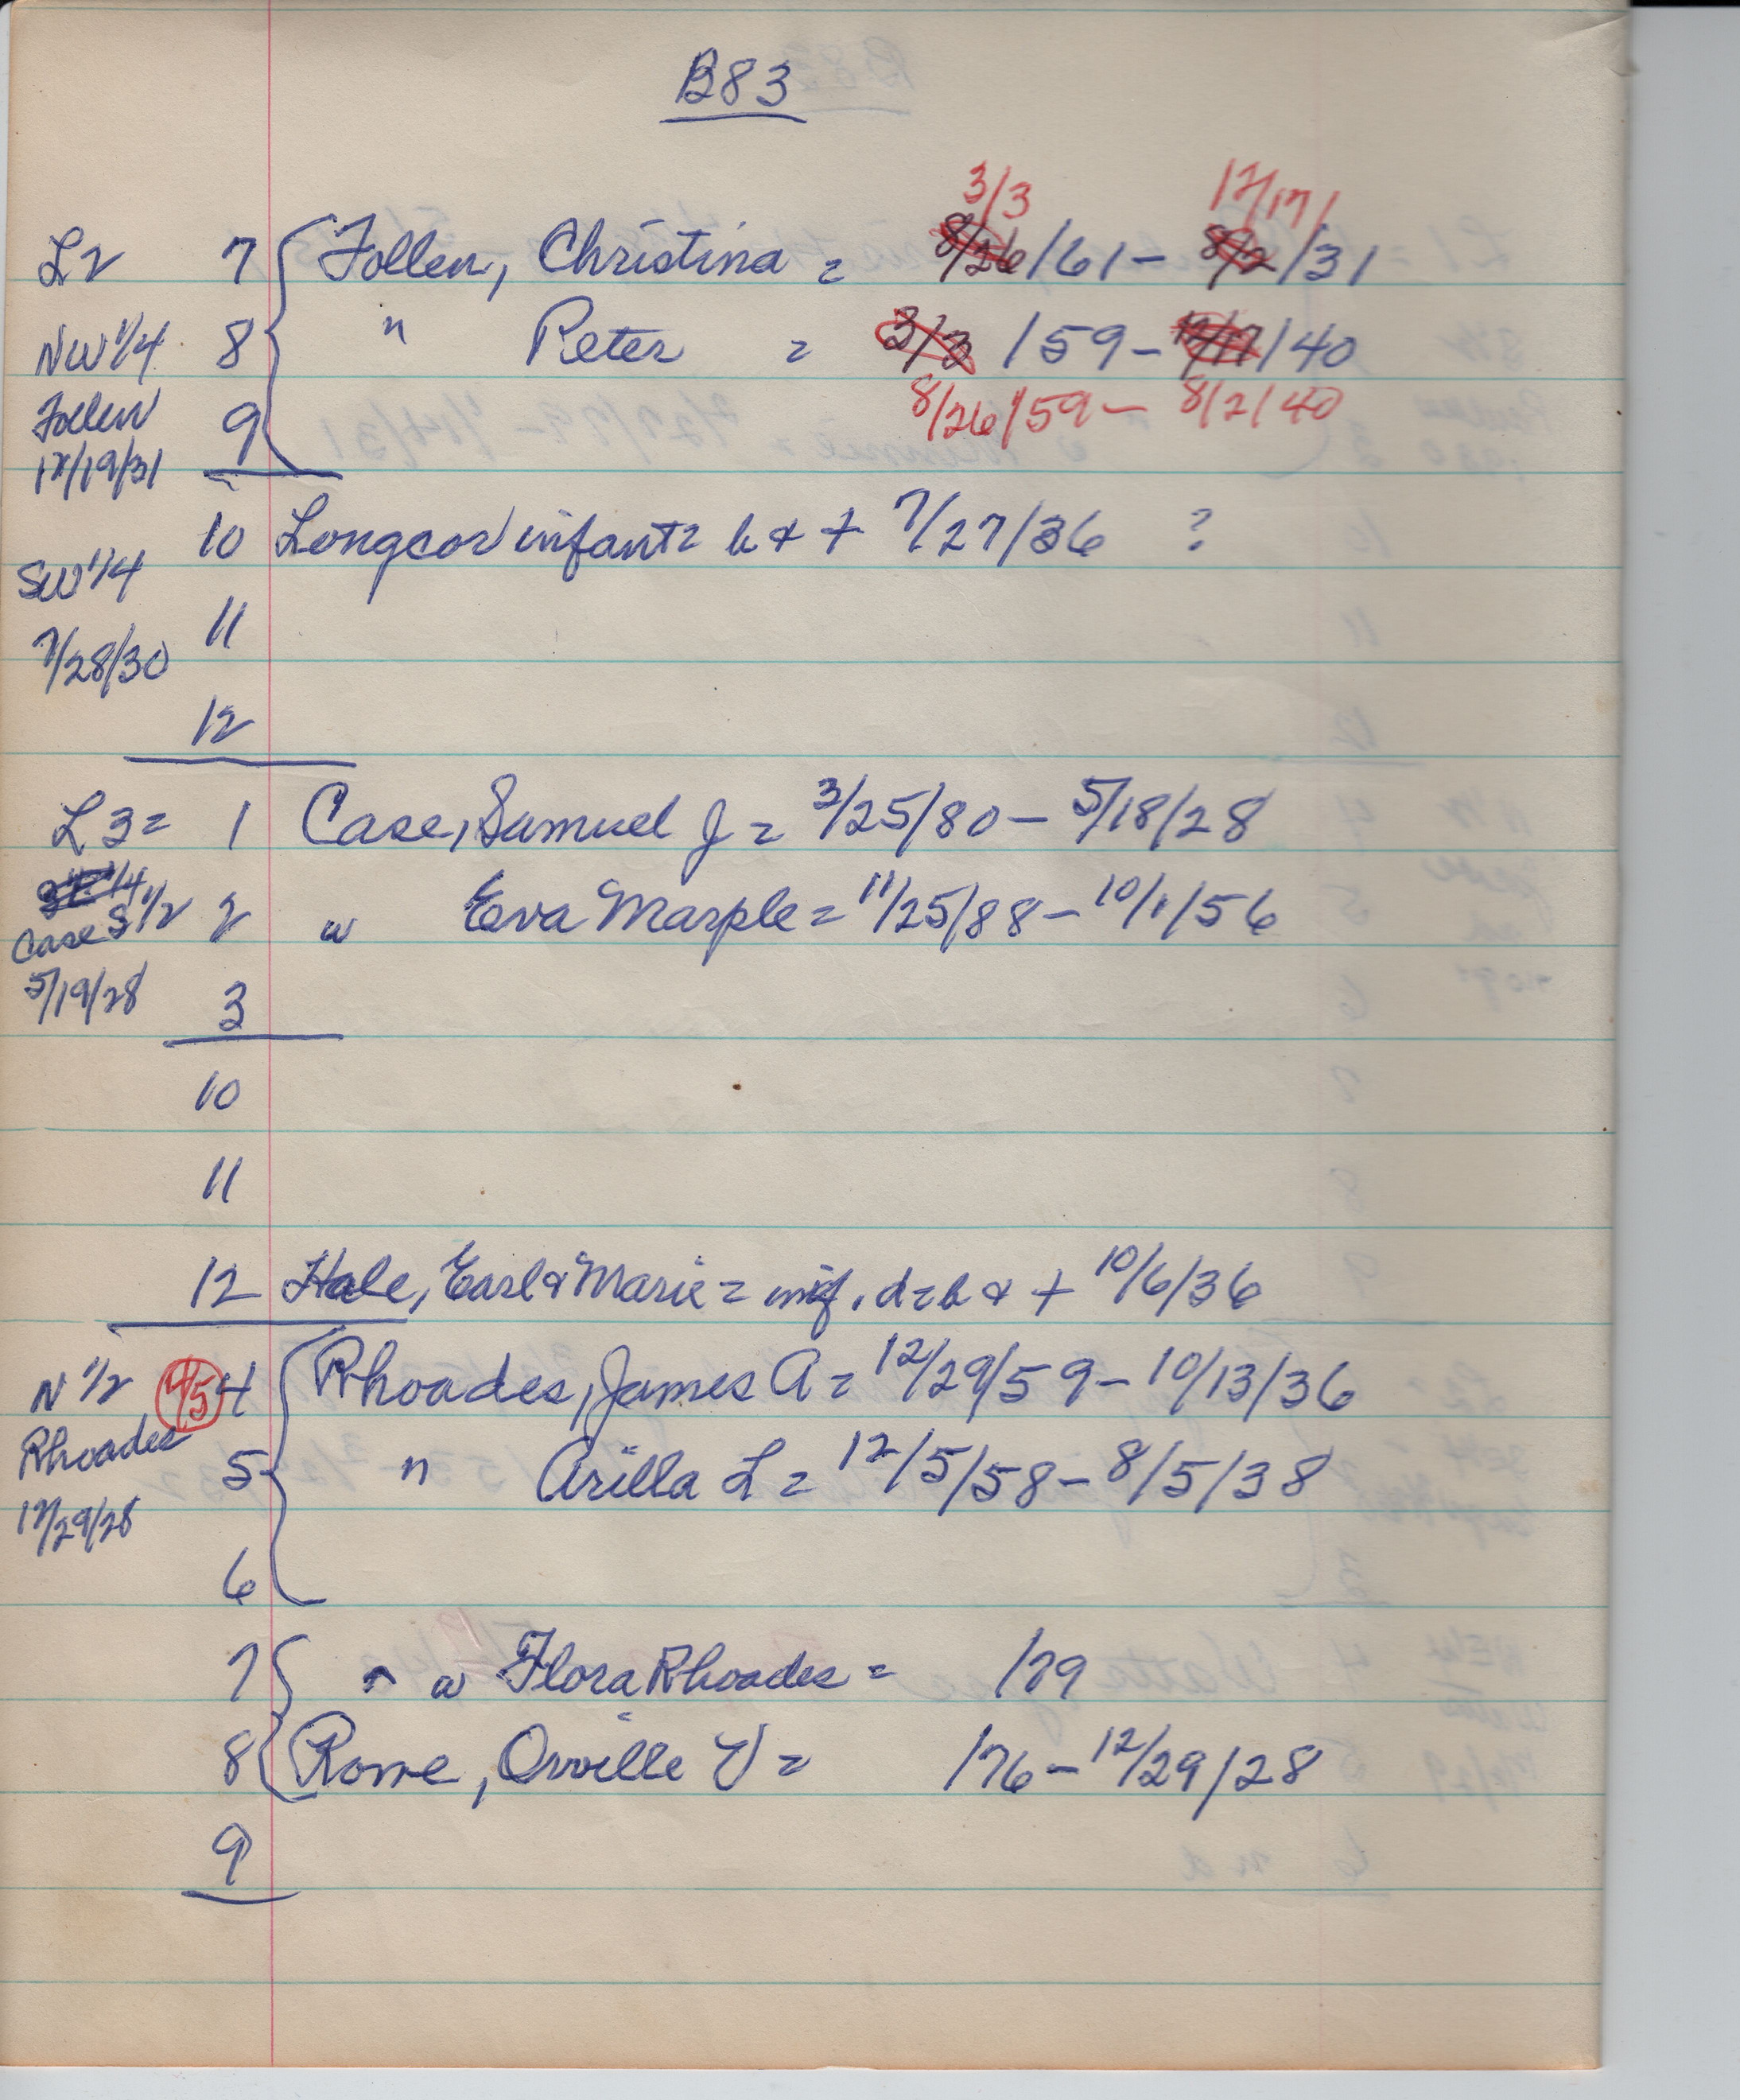 B83
3/3 12/17/
L2 7 Follen, Christina = 8/26/61 - 8/2/31
NW 1/4 8 " Peter = 3/3/59 - 12/17/40
Follen 9 8/26/59 - 8/2/40
12/19/31
10 Longcor infant = b & + 7/27/36 ?
SW 1/4
11
7/28/30
12
L3 = 1 Case, Samuel J = 3/25/80 - 5/18/28
SE 1/4
Case S 1/2 2 w Eva Marple = 11/25/88 - 10/1/56
5/19/28 3
10
11
12 Hale, Earl & Marie = inf. d = b & + 10/6/36
N 1/2 4/5 4 Rhoades, James A = 12/29/59 - 10/13/36
Rhoades 5 " Arilla L = 12/5/58 - 8/5/38
12/29/28
6
7 " w Flora Rhoades = /79
8 Rowe, Orville V = /76 - 12/29/28
9